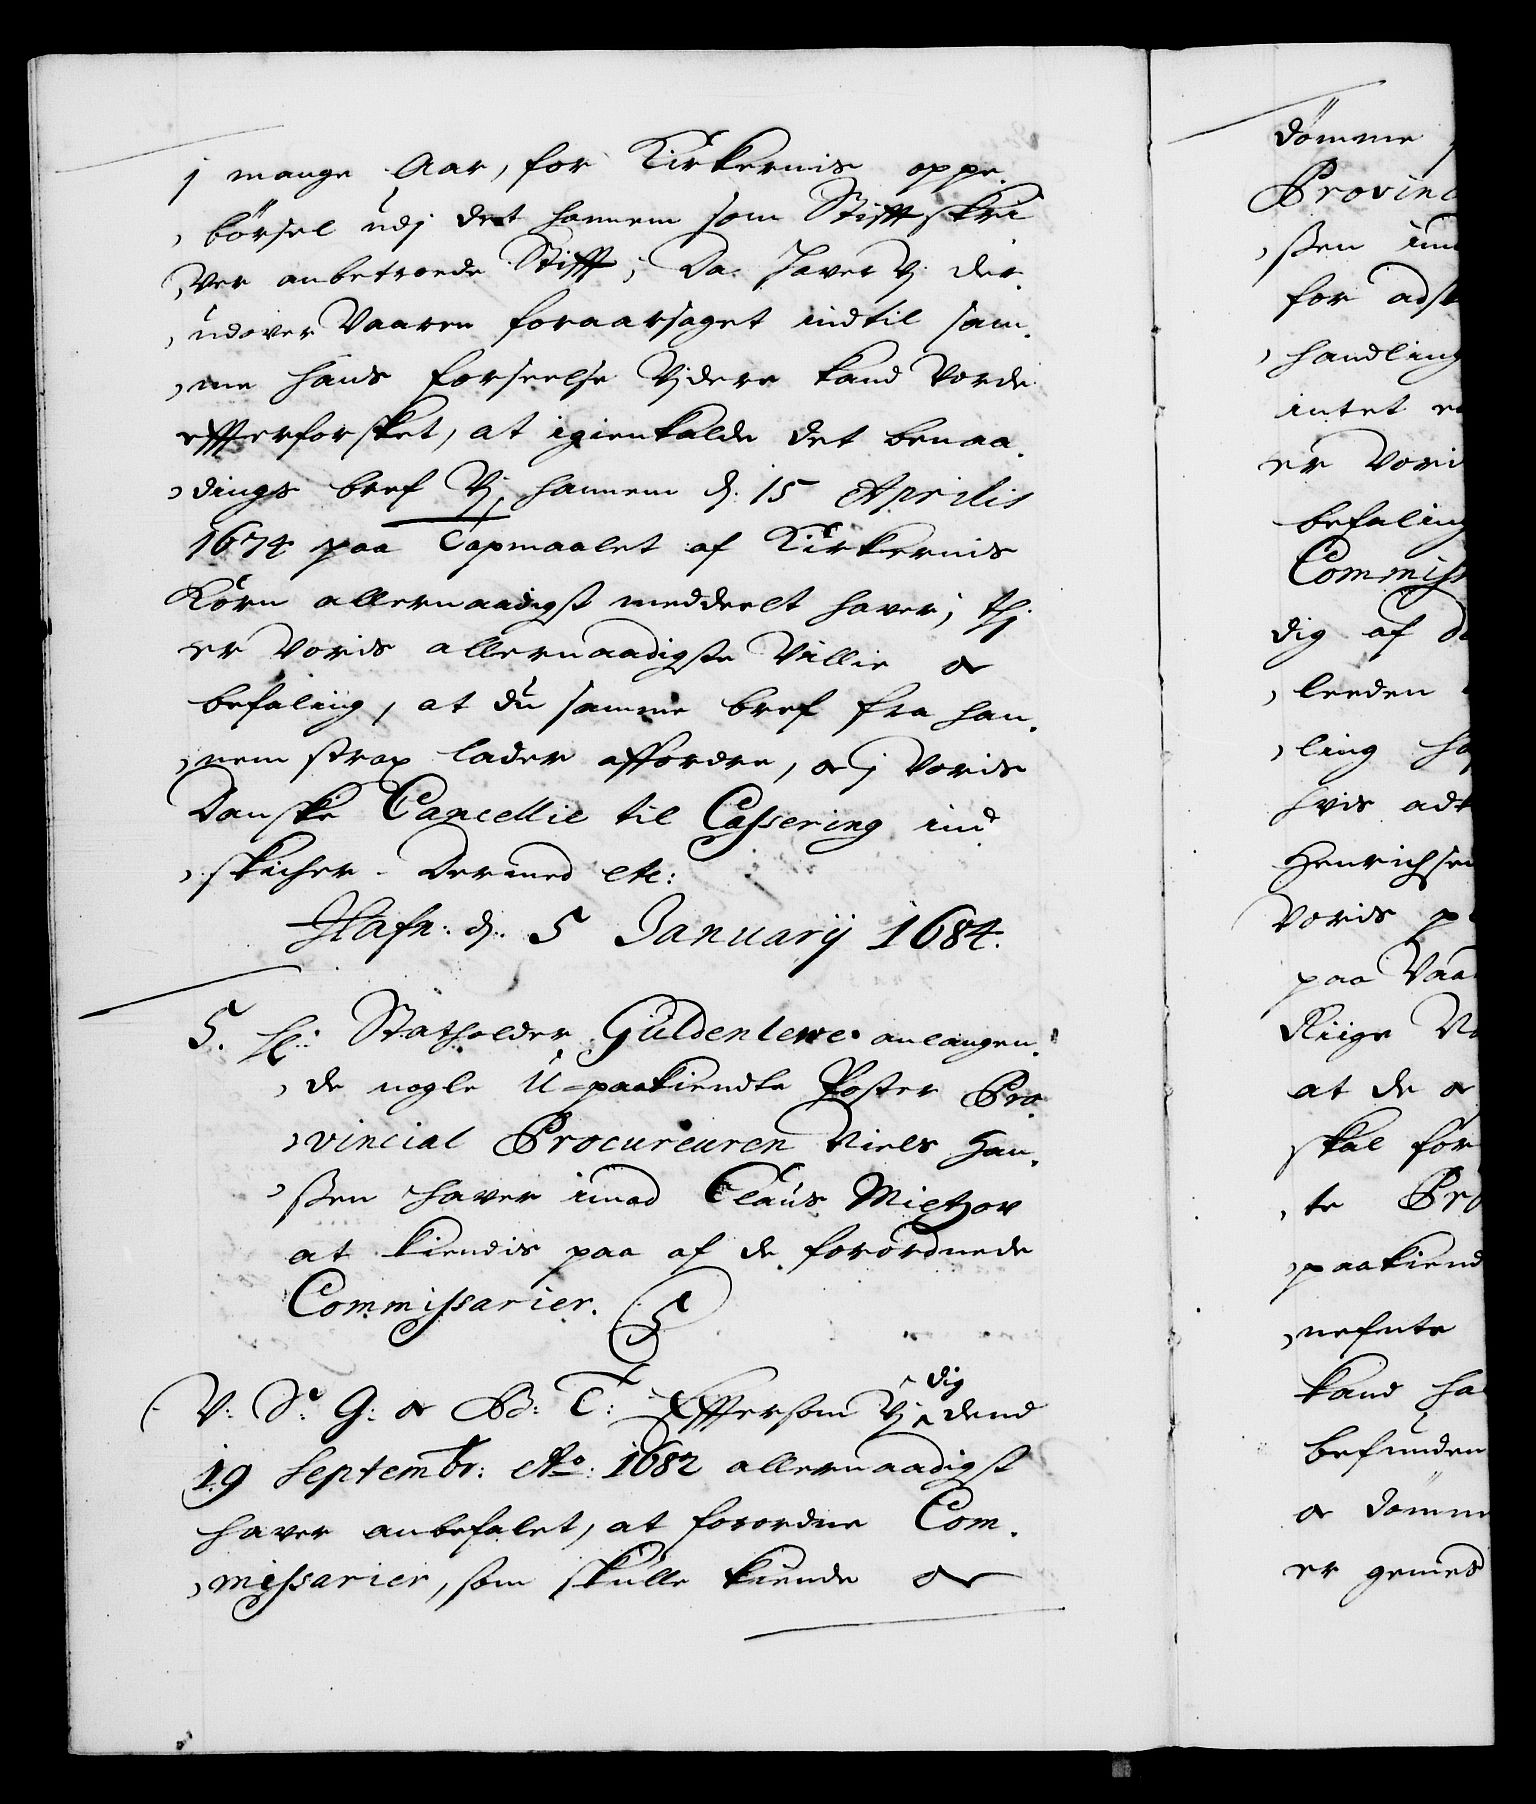 j mange Aar, for Kirkernis oppe.
, börsel udj det hannem som Stifftskri
, ver anbetroede Stifft; Da haver Vj der.
, udover Vaaren foraarsaget indtil sam.
, me hans forseelse Vjdere kand Vorde
effterforsket, at igienkalde det benaa.
, dings bref Vj hannem d: 15 Aprilis
1674 paa Tapmaalet af Kirkernis
Korn allernaadigst meddeelt haver; Thj
er Voris allernaadigste Villie oc
befaling, at du samme bref fra han.
, nem strax lader affordre, oc j Voris
Danske Cancellie til Casserring ind
, skicher. Dermed etc:
Hafn: d: 5 Januarij 1684.
5. H: Statholder Güldenlewe anlangen.
, de nogle U=paakiendte Poster Pro
, vincial Procureuren Niels Han.
, ssen haver imod Claus Mietzov
at kiendis paa af de forordnede
Commissarier. 5
V: S: G: oc B: T: Effersom Vj dig dend
19 Septembr: Ao: 1682 allernaadigst
haver anbefalet, at forordne Com.
, missarier, som skulle kiende oc
dömme
Provinc
, ssen im
for adsk
, handling
intet
er Vori
befaling
Commiss
dig af d
, leeden
, ling ha
hvis adt
Henrichsen
Voris p
paa Vaa
Riige No
at de oc
skal for
, te Pro
, paakiend
, nefnte
kand ha
befunden
oc dömm
er gemes